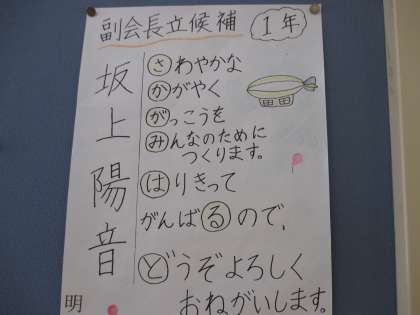 副会長立候補
1年
坂上陽音
さわやかな
かがやく
がっこうを
みんなのために
つくります。
はりきって
がんばるので、
どうぞよろしく
おねがいします。
明